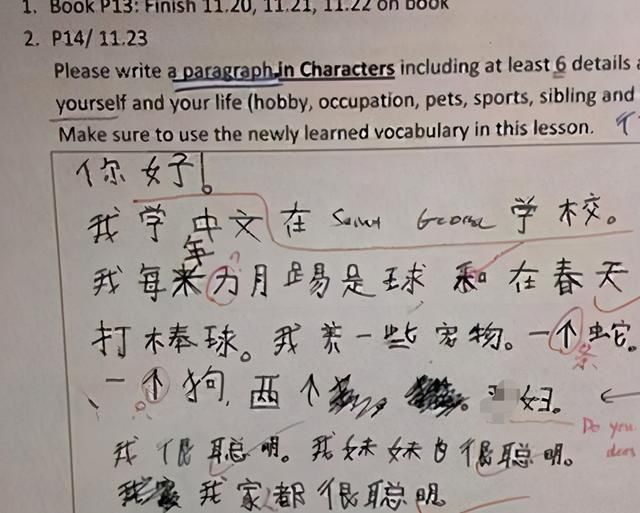 1. Book P13: Finish 11.20, 11.21, 11.22 on book
2. P14/ 11.23
Please write a paragraph in Characters including at least 6 details
yourself and your life (hobby, occupation, pets, sports, sibling and
Make sure to use the newly learned vocabulary in this lesson. 个
你好!
我学中文在 Saint George 学校。
年
我每 力月踢是球和在春天
打棒球。我养一些宠物。一个蛇。
条
一个狗,两个
Do you
我很聪明。我妹妹也很聪明。
我家都很聪明